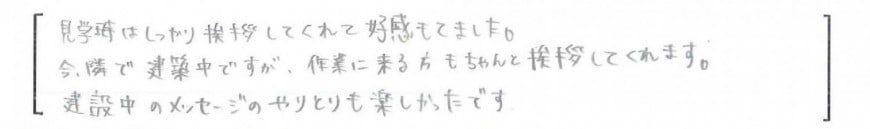 見学時はしっかり挨拶してくれて好感もてました。
今、隣で建築中ですが、作業に来る方もちゃんと挨拶してくれます。
建設中のメッセージのやりとりも楽しかったです